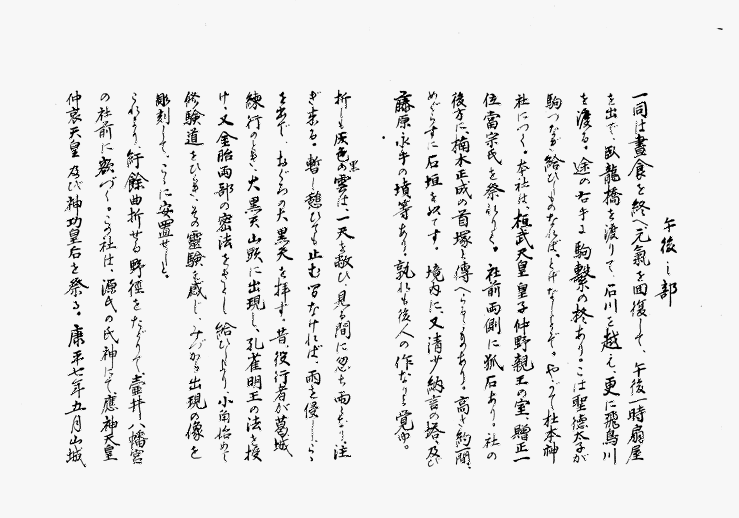 午後之部
一同は晝食を終へ元氣を回復して、午後一時扇屋
を出で、臥龍橋を渡りて、石川を越え、更に飛鳥川
を渡る。途の右手に駒繋の柊あり。こは聖德太子が
駒つなぎ給ひしものなれば、しかなしとぞ。やがて杜本神
社につく。本社は、桓武天皇皇子仲野親王の室、贈正一
位當宗氏を祭れりと。社前兩側に狐石あり。社の
後方に楠木正成の首塚と傳へらるゝものあり。高さ約一間、
めぐらすに石垣を以てす。境内に、又清少納言の塔、及び
藤原永手の墳等あり、孰れも後人の作なりと覺ゆ。
折しも灰色の黑雲は、一天を敝ひ、見る間に忽ち雨となり注
ぎ來る。暫し憩ひても止む間なければ、雨を侵し
を出で、大黑天を拜す。昔、役行者が葛城
練行のとき、大黑天山巓に出現し、孔雀明王の法を授
け、又金胎兩部の密法をさとし給ひしより、小角始めて
修驗道をひらき、その靈驗を感じ、みづから出現の像を
彫刻して、こゝに安置せしと。
これより、紆餘曲折せる野徑をたどりて、壷井八幡宮
の社前に額づく。この社は、源氏の氏神にて、應神天皇
仲哀天皇及び神功皇后を祭る。康平七年五月山城